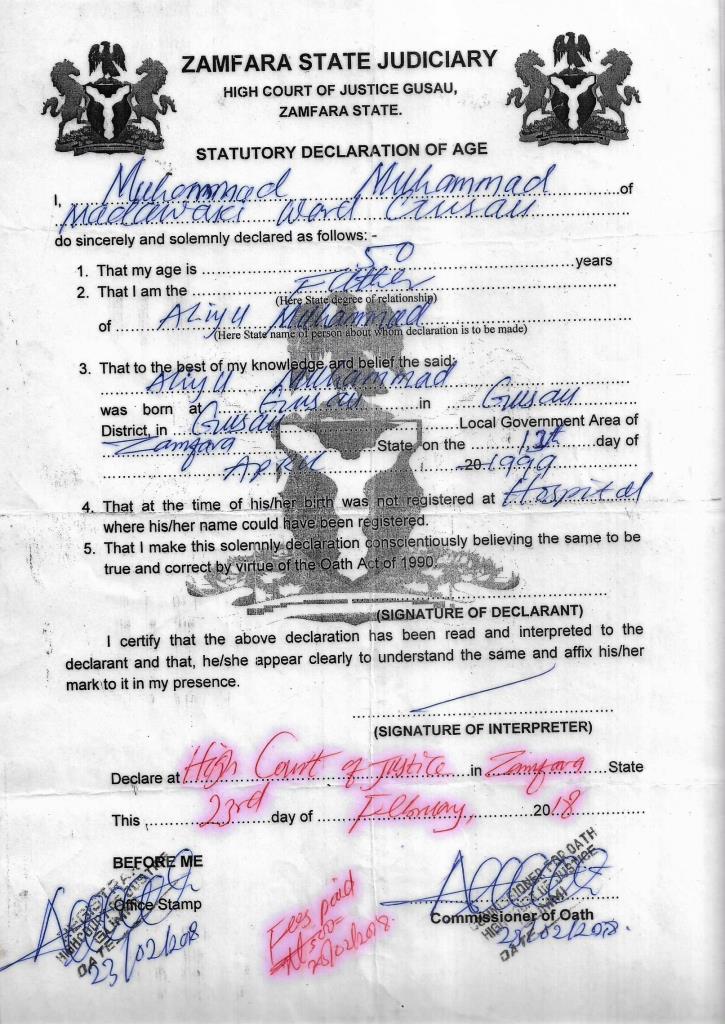 ZAMFARA STATE JUDICIARY
HIGH COURT OF JUSTICE GUSAU,
ZAMFARA STATE.
STATUTORY DECLARATION OF AGE
I, Muhammad Muhammad of
Madawaki Ward Gusau
do sincerely and solemnly declared as follows: -
1. That my age is 50 years
2. That I am the Father
(Here State degree of relationship)
of Aliyu Muhammad
(Here State name of person about whom declaration is to be made)
3. That to the best of my knowledge and belief the said:
Aliyu Muhammad
was born at Gusau in Gusau
District, in Gusau Local Government Area of
Zamfara State, on the 13th day of
April 20 1999
4. That at the time of his/her birth was not registered at Hospital
where his/her name could have been registered.
5. That I make this solemnly declaration conscientiously believing the same to be
true and correct by virtue of the Oath Act of 1990.
(SIGNATURE OF DECLARANT)
I certify that the above declaration has been read and interpreted to the
declarant and that, he/she appear clearly to understand the same and affix his/her
mark to it in my presence.
(SIGNATURE OF INTERPRETER)
Declare at High Court of Justice in Zamfara State
This 23rd day of February, 2018
BEFORE ME
Office Stamp
23/02/2018
Fees paid
₦500=
23/02/2018.
COMMISSIONER FOR OATH
HIGH COURT OF JUSTICE
DATE
Commissioner of Oath
23/02/2018.